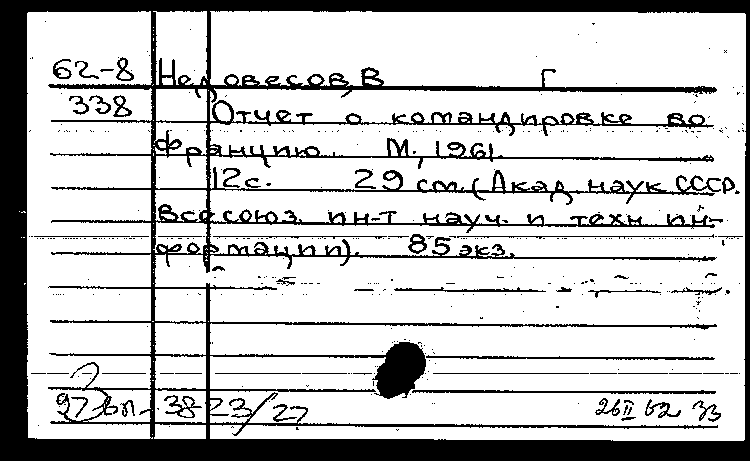 62-8 Недовесов, В Г
338 Отчет о командировке во
францию. М., 1961.
12с. 29 см. (Акад. наук СССР.
Всесоюз. ин-т науч. и техн. ин-
формации). 85 экз.
38-23/27 26 II 62 33